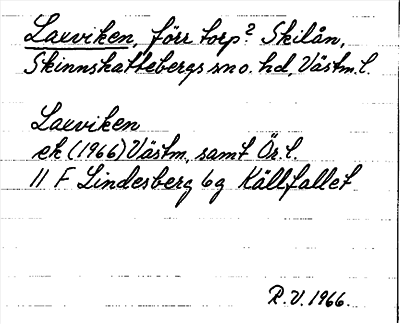 Laxviken, förr torp? Skilån,
Skinnskattebergs sn o. hd, Västm. l.
Laxviken
ek (1966) Västm. samt Ör. l.
11 F Lindesberg 6g Källfallet
R.V. 1966.